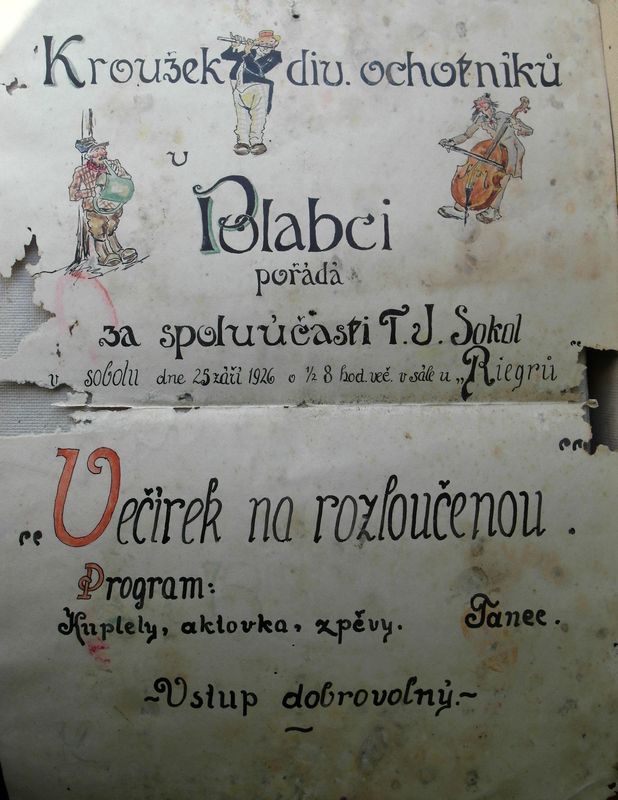 Kroužek div. ochotníků
v
Polabci
pořádá
za spoluúčasti T. J. Sokol
v sobotu dne 25 září 1926 o ½ 8 hod. več. v sále u „Riegrů“
„Večírek na rozloučenou“.
Program:
Kuplety, aktovka, zpěvy. Tanec.
~Vstup dobrovolný.~